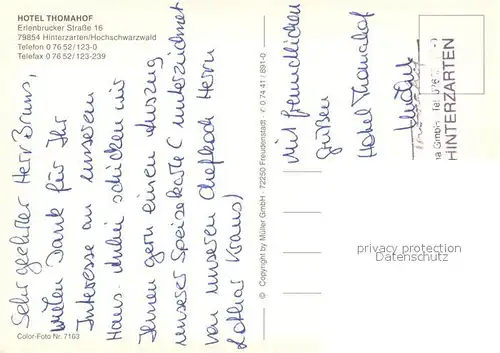 HOTEL THOMAHOF
Erlenbrucker Straße 16
79854 Hinterzarten/Hochschwarzwald
Telefon 0 76 52/123-0
Telefax 0 76 52/123-239
Sehr geehrter Herr Bruns,
vielen Dank für Ihr
Interesse an unserem
Haus. Anbei schicken wir
Ihnen gern einen Auszug
unserer Speisekarte (unterzeichnet
von unserem Chefkoch Herrn
Lothar Kraus)
Mit freundlichen
Grüßen
Hotel Thomahof
Color-Foto Nr. 7163
© Copyright by Müller GmbH · 72250 Freudenstadt · F 0 74 41 / 891-0
HINTERZARTEN
privacy protection
Datenschutz